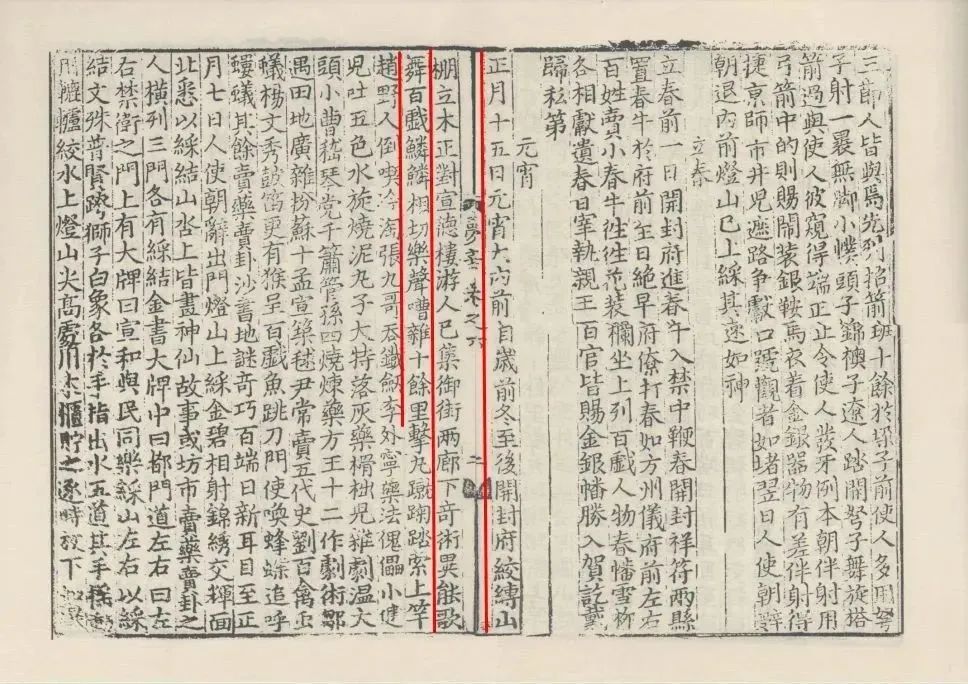 三節人皆與焉先列招箭班十餘於垜子前使人多用弩
子射一裹無脚小幞頭子錦襖子遼人踏開弩子舞旋搭
箭過與使人彼窺得端正止令使人發牙例本朝伴射用
弓箭中的則賜鬧裝銀鞍馬衣着金銀器物有差伴射得
捷京師市井兒遮路争獻口號觀者如堵翌日人使朝辭
朝退内前燈山已上綵其速如神
立春
立春前一日開封府進春牛入禁中鞭春開封祥符兩縣
置春牛於府前至日絶早府僚打春如方州儀府前左右
百姓賣小春牛往往花裝欄坐上列百戲人物春幡雪柳
各相獻遺春日宰執親王百官皆賜金銀幡勝入賀訖戴
歸私第
元宵
正月十五日元宵大内前自歲前冬至後開封府絞縛山
夢華卷之六
二
棚立木正對宣德樓游人已集御街兩廊下奇術異能歌
舞百戲鱗鱗相切樂聲嘈雜十餘里擊丸蹴踘踏索上竿
趙野人倒喫冷淘張九哥吞鐵劒李外寧藥法傀儡小健
兒吐五色水旋燒泥丸子大特落灰藥榾柮兒雜劇温大
頭小曹嵇琴党千簫管孫四燒煉藥方王十二作劇術鄒
遇田地廣雜扮蘇十孟宣築毬尹常賣五代史劉百禽虫
蟻楊文秀鼓笛更有猴呈百戲魚跳刀門使喚蜂蝶追呼
螻蟻其餘賣藥賣卦沙書地謎奇巧百端日新耳目至正
月七日人使朝辭出門燈山上綵金碧相射錦綉交輝面
北悉以綵結山沓上皆畫神仙故事或坊市賣藥賣卦之
人橫列三門各有綵結金書大牌中曰都門道左右曰左
右禁衛之門上有大牌曰宣和與民同樂綵山左右以綵
結文殊普賢跨獅子白象各於手指出水五道其手摇
用轆轤絞水上燈山尖高處用木櫃貯之逐時放下